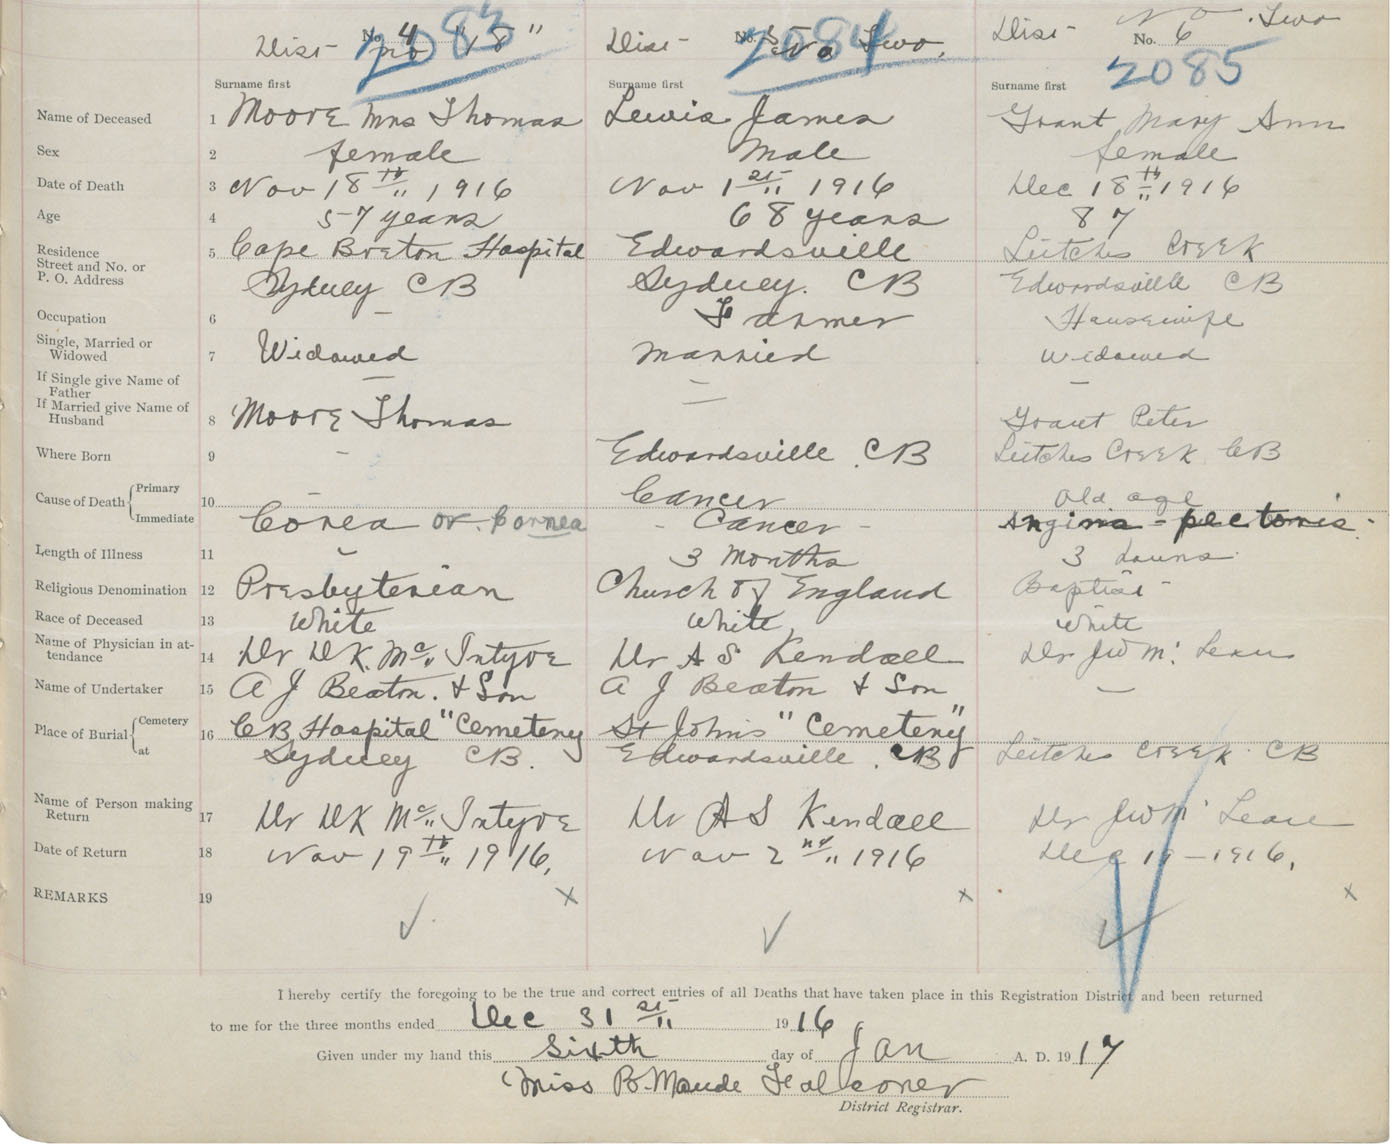 Dist- No. 4 No "18" 2083
Dist- No. 5 No Two, 2084
Dist- No Two No. 6 2085
Surname first Surname first Surname first
Name of Deceased 1 Moore Mrs Thomas Lewis James Grant Mary Ann
Sex 2 female Male female
Date of Death 3 Nov 18th 1916 Nov 1st 1916 Dec 18th 1916
Age 4 57 years 68 years 87
Residence Street and No. or P. O. Address 5 Cape Breton Hospital Edwardsville Leitches Creek
Sydney CB Sydney. CB Edwardsville CB
Occupation 6 - Farmer Housewife
Single, Married or Widowed 7 Widowed Married Widowed
If Single give Name of Father — — -
If Married give Name of Husband 8 Moore Thomas Grant Peter
Where Born 9 - Edwardsville CB Leitches Creek CB
Cause of Death Primary 10 - Cancer Old age
Immediate Corea or Cornea - Cancer - Angina - pectoris.
Length of Illness 11 - 3 Months 3
Religious Denomination 12 Presbyterian Church of England Baptist
Race of Deceased 13 White White White
Name of Physician in attendance 14 Dr D K. Mc Intyre Dr A S Kendall Dr J W Mc Lean
Name of Undertaker 15 A J Beaton. & Son A J Beaton & Son —
Place of Burial Cemetery 16 CB Hospital "Cemetery St Johns "Cemetery"
at Sydney CB. Edwardsville. CB Leitches Creek CB
Name of Person making Return 17 Dr D K Mc Intyre Dr A S Kendall Dr J W Mc Lean
Date of Return 18 Nov 19th 1916, Nov 2nd 1916 Dec 19 - 1916,
REMARKS 19 x x x
I hereby certify the foregoing to be the true and correct entries of all Deaths that have taken place in this Registration District and been returned
to me for the three months ended Dec 31st 1916
Given under my hand this Sixth day of Jan A. D. 1917
Miss B. Maude Falconer
District Registrar.